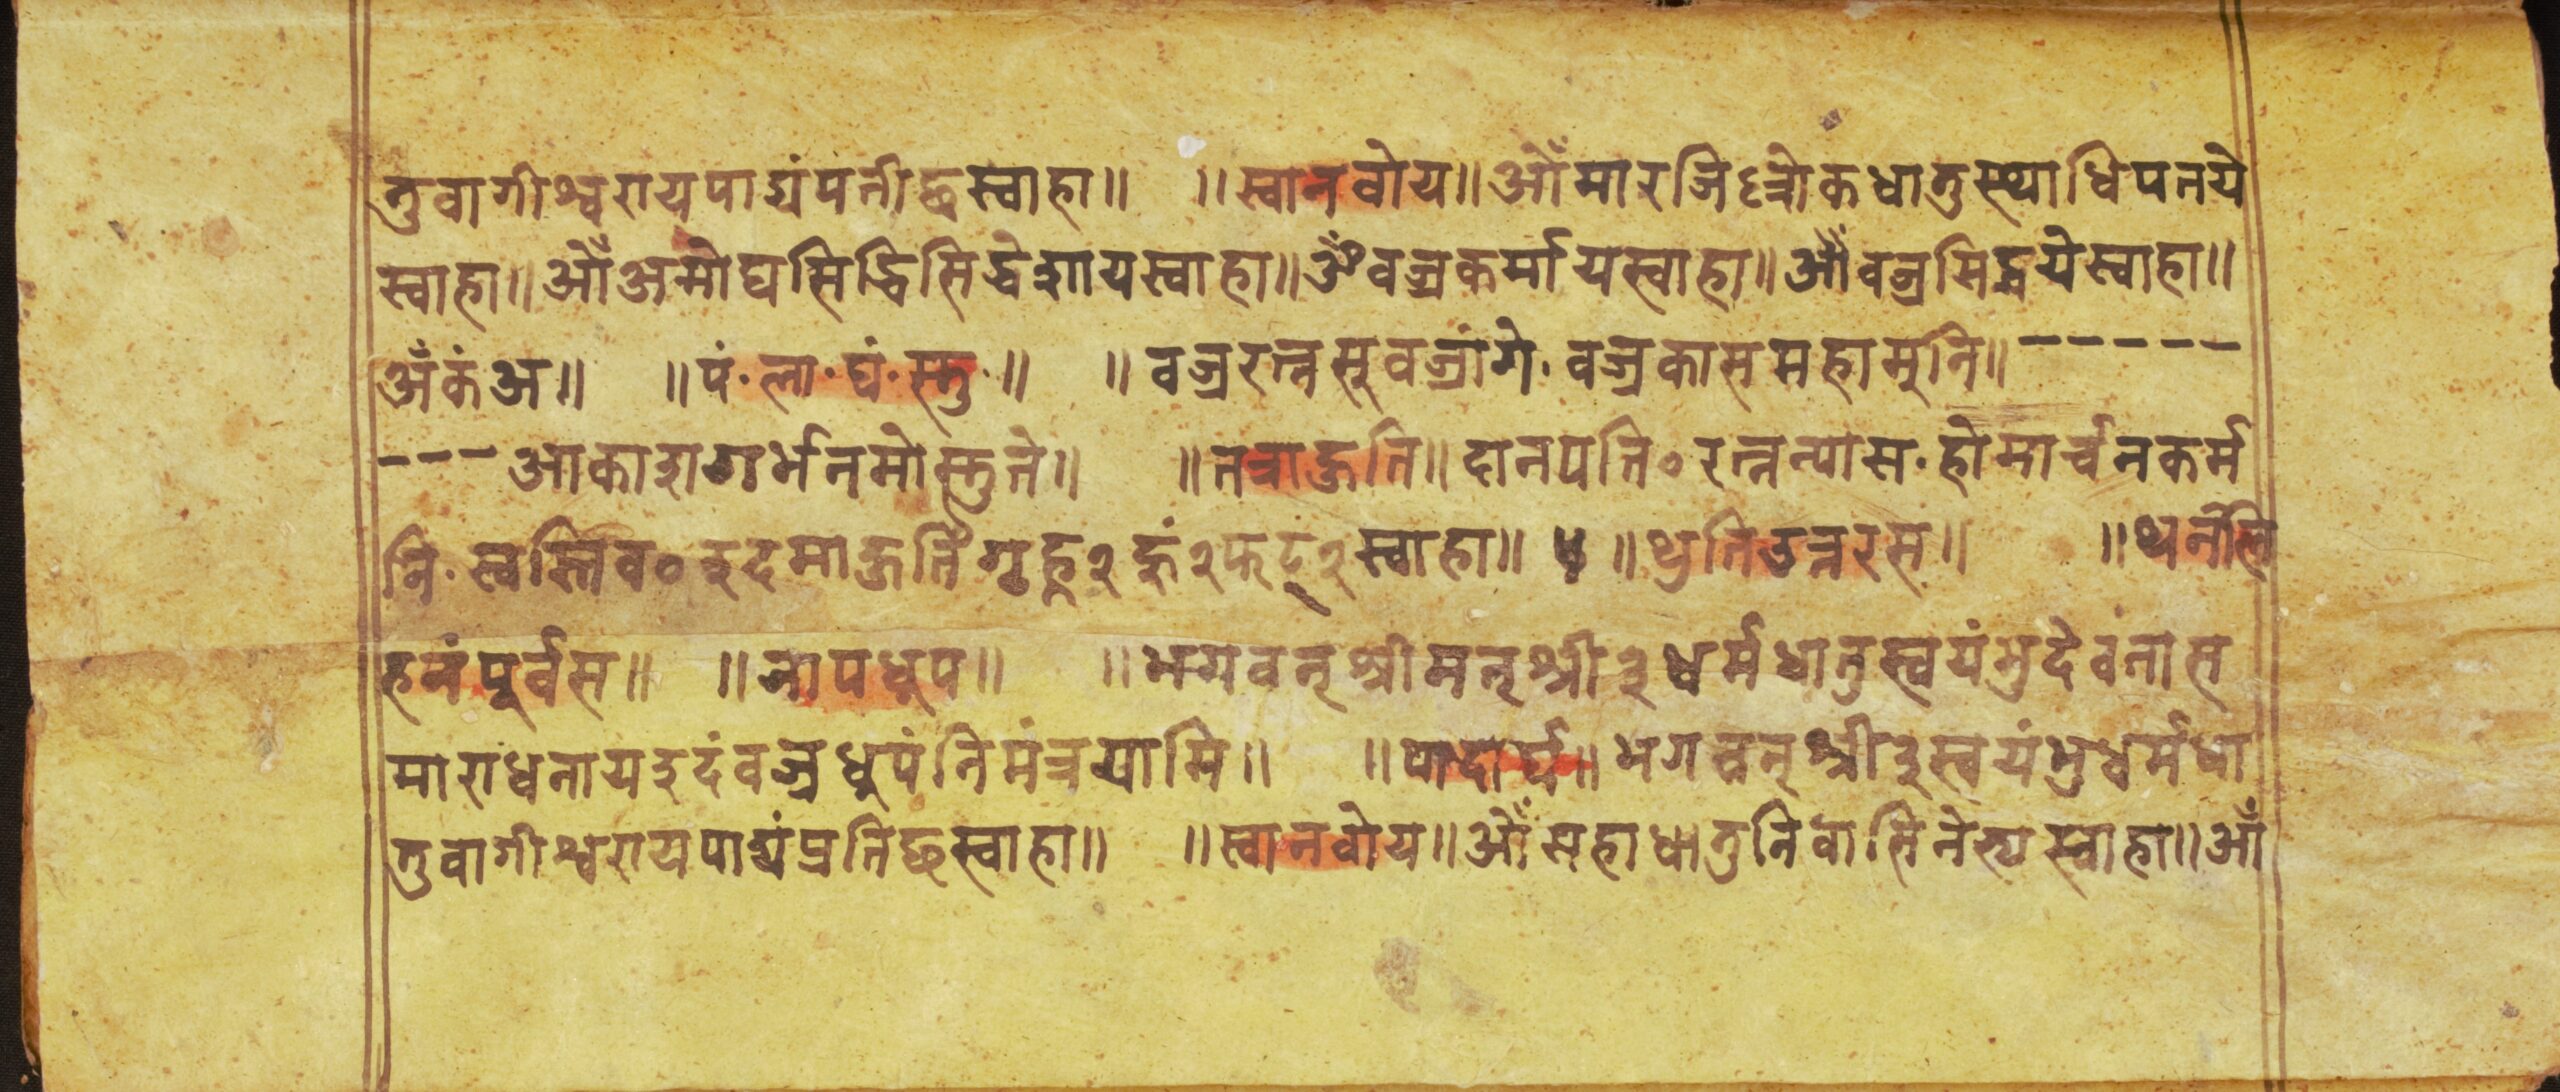 तुवागीश्वरायपाद्यंपतीच्छस्वाहा॥ ॥स्वानवोय॥ओँमारजिल्लोकधातुस्थाधिपतये
स्वाहा॥ओँअमोघसिद्धिसिद्धेशायस्वाहा॥ॐवज्रकर्मायस्वाहा॥ओँवज्रसिद्धयेस्वाहा॥
अँकंअ॥ ॥पं·ला·घं·स्तु·॥ ॥वज्ररत्नसूवज्रांगे·वज्रकासमहामुनि॥-----
---आकाशगर्भनमोस्तुते॥ ॥तत्राहुति॥दानपति०रत्नन्यास·होमार्च्चनकर्म
नि·स्वस्तिव०इदमाहुतिँगृह्ह२हुं२फट्२स्वाहा॥ ४ ॥थ्रुतिउत्तरस॥ ॥थनंलि
हनंपूर्वस॥ ॥जापधुप॥ ॥भगवन्श्रीमत्श्री३धर्मधातुस्वयंभुदेवतास
माराधनायइदंवज्रधुपंनिमंत्रयामि॥ ॥पादार्घ॥भगवन्श्री३स्वयंभुधर्मधा
तुवागीश्वरायपाद्यंप्रतिच्छस्वाहा॥ ॥स्वानवोय॥ओँसहाधातुनिवासिनेस्यस्वाहा॥ओँ